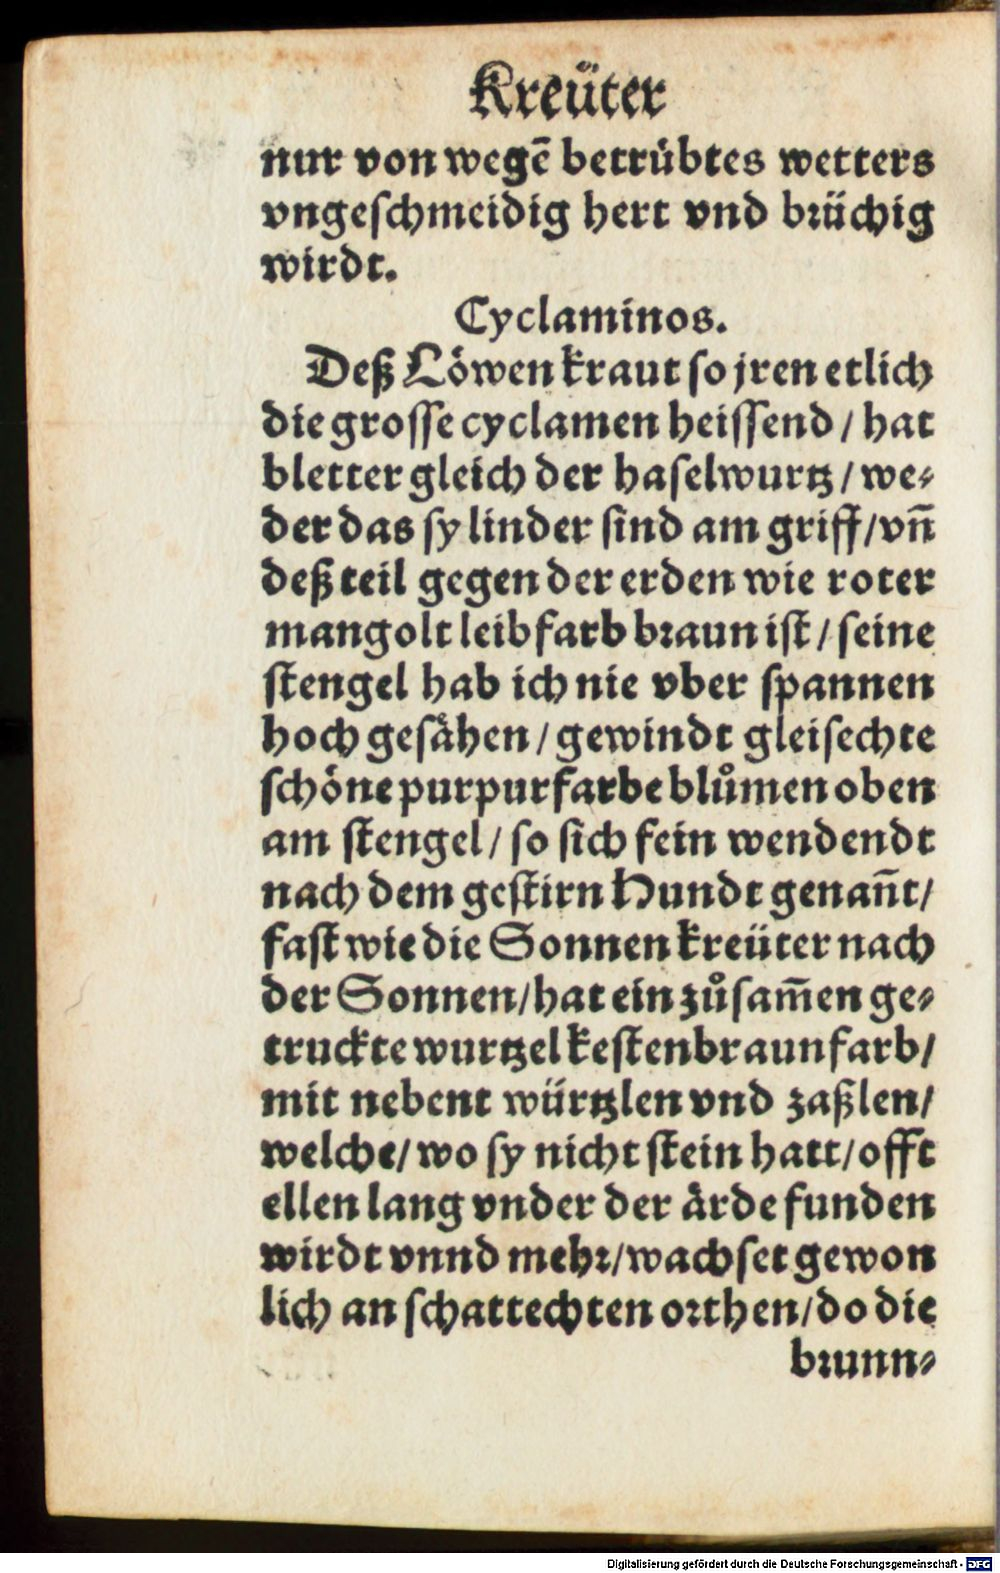 Kreüter
nur von wegē betrübtes wetters
vngeschmeidig hert vnd brüchig
wirdt.
Cyclaminos.
Deß Löwen kraut so jren etlich
die grosse cyclamen heissend / hat
bletter gleich der haselwurtz / we⸗
der das sy linder sind am griff / vñ
deß teil gegen der erden wie roter
mangolt leibfarb braun ist / seine
stengel hab ich nie vber spannen
hoch gesåhen / gewindt gleisechte
schöne purpurfarbe blůmen oben
am stengel / so sich fein wendendt
nach dem gestirn Hundt genañt /
fast wie die Sonnen kreüter nach
der Sonnen / hat ein zůsam̃en ge⸗
truckte wurtzel kestenbraunfarb /
mit nebent würtzlen vnd zaßlen /
welche / wo sy nicht stein hatt / offt
ellen lang vnder der årde funden
wirdt vnnd mehr / wachset gewon
lich an schattechten orthen / do die
brunn⸗
Digitalisierung gefördert durch die Deutsche Forschungsgemeinschaft - DFG